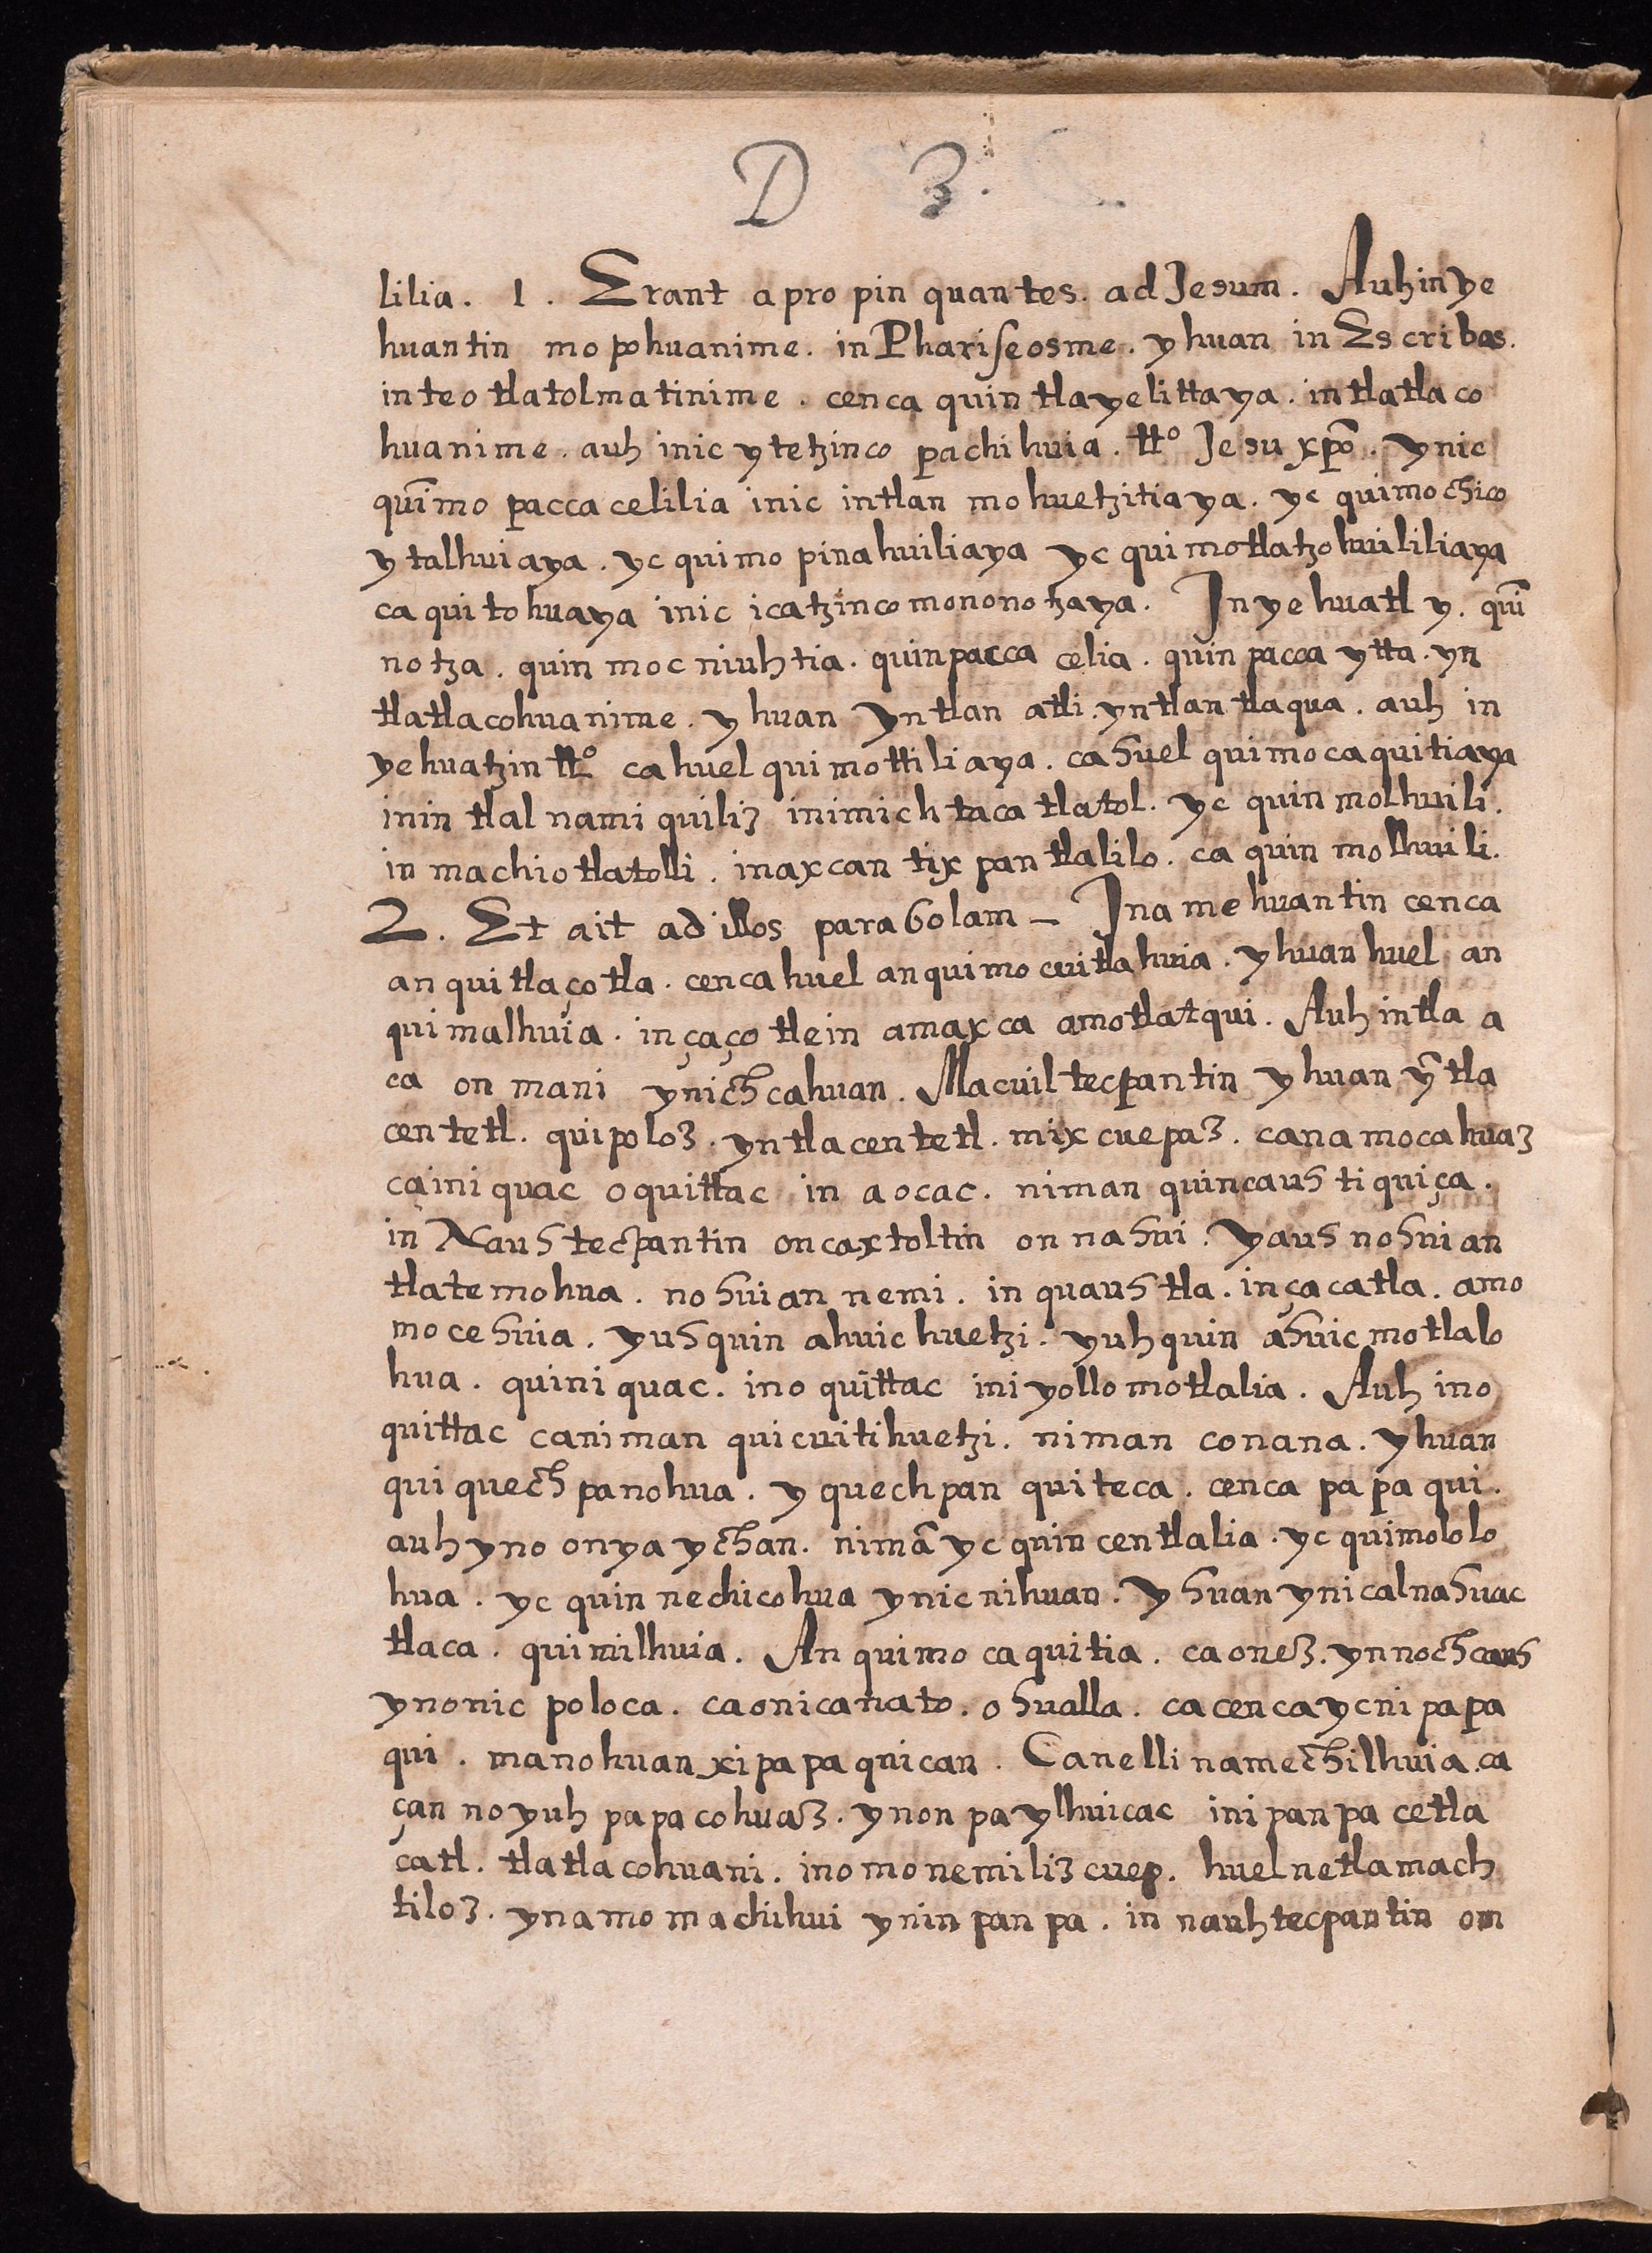 D 3.
lilia. 1. Erant a pro pin quantes. ad Jesum. Auh in ye
huantin mo pohuanime. in Phariseosme. y huan in Escribas.
in teo tlatolmatinime. cenca quin tlayelittaya. in tlatlaco
huanime. auh inic ytetzinco pachihuia. tto Jesu xpõ. ynic
quĩmo pacca celilia inic intlan mohuetzitiaya. yc quimo chico
ytalhuiaya. yc quimo pinahuiliaya yc quimotlatzohuililiaya
ca quitohuaya inic icatzinco monono tzaya. In yehuatl y. quĩ
notza. quin moc niuhtia. quinpacca celia. quin pacca ytta. yn
tlatlacohuanime. y huan yntlan atli. yntlan tlaqua. auh in
yehuatzin tto ca huel quimottiliaya. ca huel quimocaquitiaya
inin tlalnamiquiliz inimichtaca tlatol. yc quin molhuili.
in machiotlatolli. inaxcan tixpan tlalilo. ca quin molhuili.
2. Et ait ad illos parabolam - Inamehuantin cenca
an quitlaçotla. cenca huel anquimo cuitlahuia. yhuan huel an
quimalhuia. in çaço tlein amaxca amotlatqui. Auh intla a
ca on mani ynichcahuan. Macuiltecpantin yhuan ỹtla
centetl. quipoloz. yntla centetl. mixcuepaz. cana mocahuaz
ça iniquac oquittac in aocac. niman quincauhtiquiça.
in Nauhtecpantin oncaxtoltin onnahui. Yauh nohuian
tlatemohua. nohuian nemi. in quauhtla. in çacatla. amo
mocehuia. yuhquin ahuic huetzi. yuhquin ahuic motlalo
hua. quiniquac. ino quittac iniyollo motlalia. Auh ino
quittac caniman quicuitihuetzi. niman conana. yhuan
quiquech panohua. y quechpan quiteca. cenca papaqui.
auh yno onya ychan. nimã yc quin centlalia. yc quimololo
hua. yc quin nechicohua ynicnihuan. Yhuan ynicalnahuac
tlaca. quimilhuia. An quimo caquitia. ca onez. yn nochcauh
ynonic poloca. ca onicanato. ohualla. ca cenca ycni papa
qui. manohuan xipapaquican. Canelli namechilhuia. ca
çan noyuh papacohuaz. ynonpa ylhuicac inipanpa cetla
catl. tlatlacohuani. ino monemilizcuep. huel netlamach
tiloz. yn amo machihui yninpanpa. in nauhtecpantin om